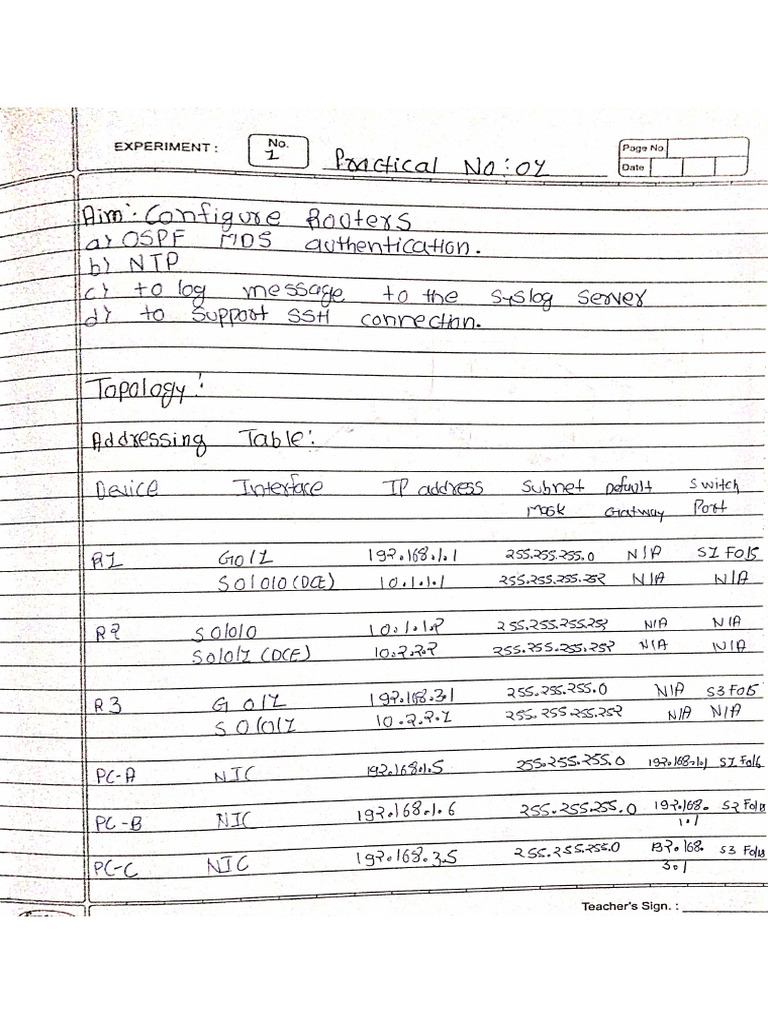 EXPERIMENT : No. 1 Practical No:01 Page No
Date
Aim: Configure Routers
a) OSPF MD5 authentication.
b) NTP
c) to log message to the syslog server
d) to support SSH connection.
Topology:
Addressing Table:
Device Interface IP address Subnet Default Switch
Mask Gatway Port
R1 G0/1 192.168.1.1 255.255.255.0 N/A S1 F0/5
S0/0/0 (DCE) 10.1.1.1 255.255.255.252 N/A N/A
R2 S0/0/0 10.1.1.2 255.255.255.252 N/A N/A
S0/0/1 (DCE) 10.2.2.2 255.255.255.252 N/A N/A
R3 G 0/1 192.168.3.1 255.255.255.0 N/A S3 F0/5
S 0/0/1 10.2.2.1 255.255.255.252 N/A N/A
PC-A NIC 192.168.1.5 255.255.255.0 192.168.1.1 S1 F0/6
PC-B NIC 192.168.1.6 255.255.255.0 192.168.
1.1 S2 F0/18
PC-C NIC 192.168.3.5 255.255.255.0 192.168.
3.1 S3 F0/18
Teacher's Sign. :